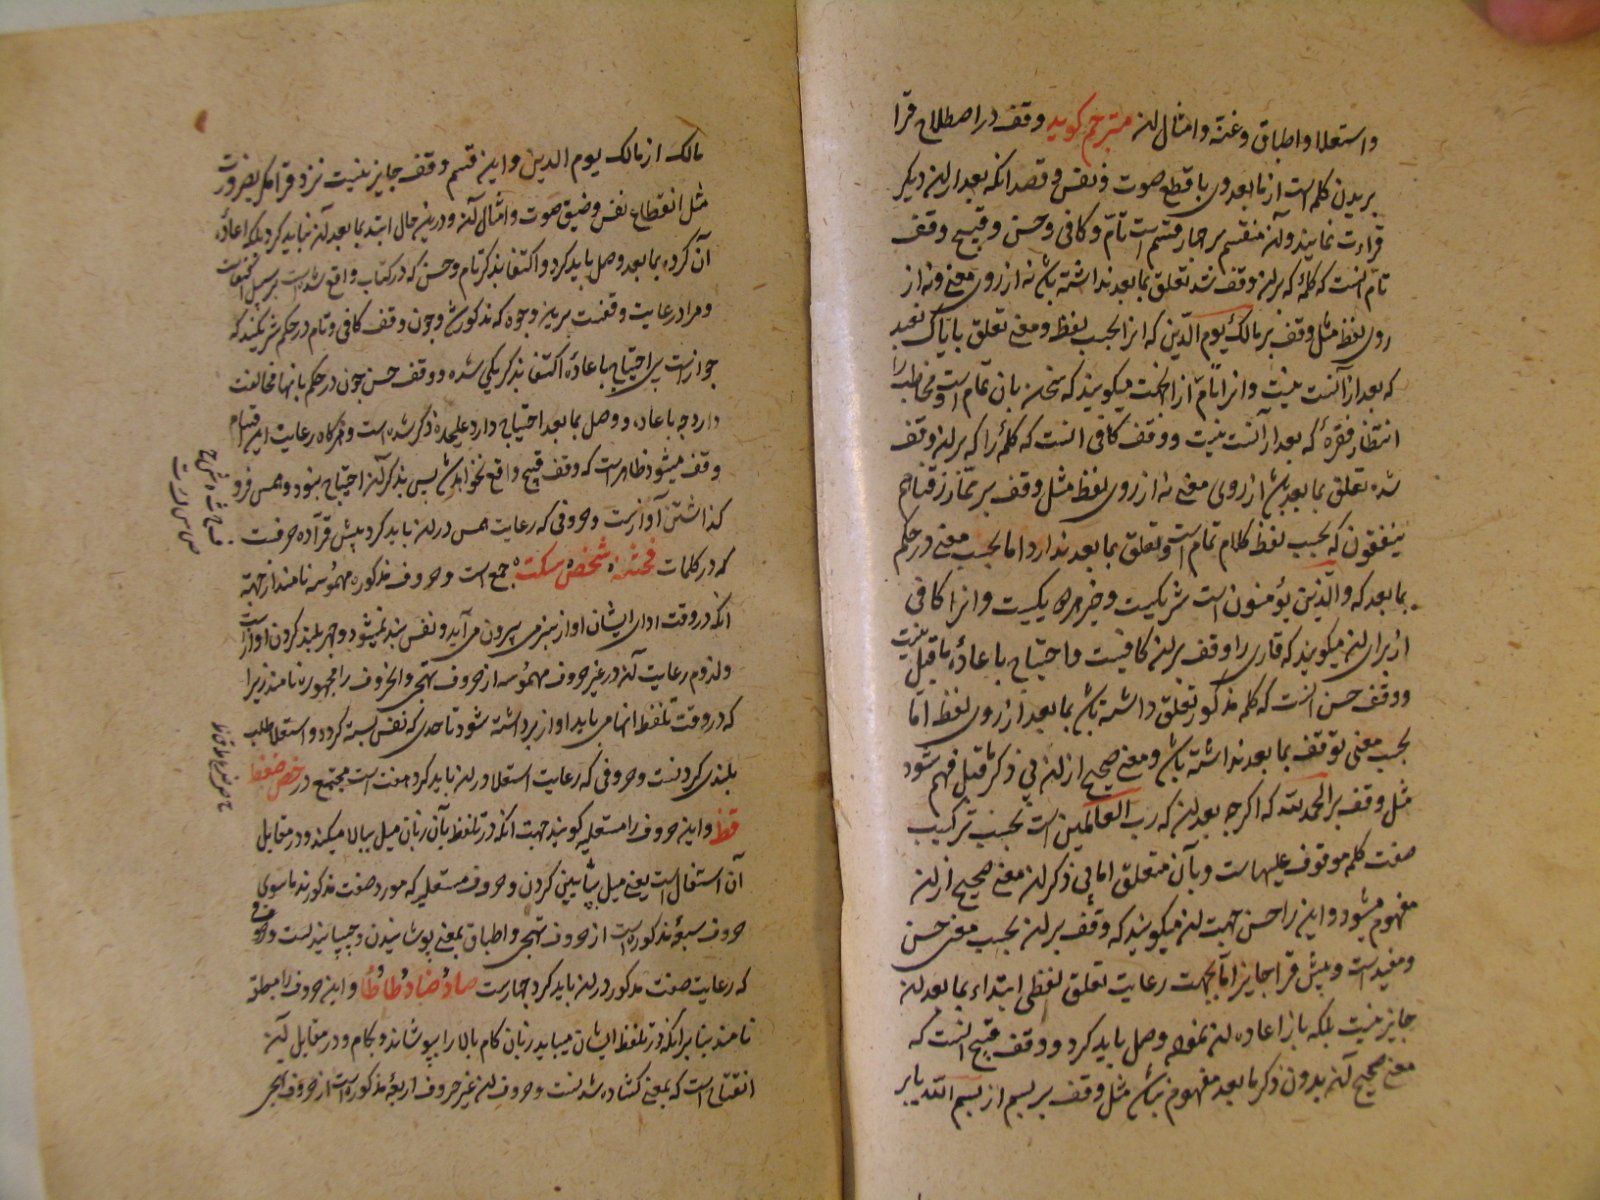 واستعلا واطباق وغنه وامثال آن مترجم کوید وقف در اصطلاح قرا
بریدن کلمه است از ما بعد وی با قطع صوت و نفس و قصد آنکه بعد از این دیکر
قراءت نمایند و آن منقسم بر چهار قسم است تام و کافی و حسن و قبیح وقف
تام آنست که کلمهٔ که بر آن وقف شد تعلق بما بعد نداشته باشد نه از روی معنی و نه از
روی لفظ مثل وقف بر مالک یوم الدین که آنرا بحسب لفظ و معنی تعلق بایاک نعبد
که بعد از آنست نیست و آنرا تام از آنجهت میکویند که سخن بآن تمام است و مخاطب را
انتظار فقرهٔ که بعد از آنست نیست و وقف کافی آنست که کلمهٔ را که بر آن وقف
شده تعلق بما بعد باشد از روی معنی نه از روی لفظ مثل وقف بر مما رزقناهم
ینفقون که بحسب لفظ کلام تمام است و تعلق بما بعد ندارد اما بحسب معنی در حکم
بما بعد که والذین یؤمنون است شریکست و ضمیر هر دو یکیست و آنرا کافی
از برای آن میکویند که قاری را وقف بر آن کافیست و احتیاج باعادهٔ ما قبل نیست
و وقف حسن آنست که کلمه مذکور تعلق داشته باشد بما بعد از روی لفظ اما
بحسب معنی توقف بما بعد نداشته باشد و معنی صحیح از آن بی ذکر ثقیل فهم شود
مثل وقف بر الحمد لله که اکرچه بعد آن که رب العالمین است بحسب ترکیب
صفت کلمه موقوف علیهاست و بآن متعلق اما بی ذکر آن معنی صحیح از آن
مفهوم میشود و این را حسن جهت آن میکویند که وقف بر آن بحسب معنی حسن
و مفید است و پیش قرا جایز اما بجهت رعایت تعلق لفظی ابتداء بما بعد آن
جایز نیست بلکه باز اعاده آن نموده وصل باید کرد و وقف قبیح آنست که
معنی صحیح آن بدون ذکر ما بعد مفهوم نباشد مثل وقف بر بسم از بسم الله یا بر
مالک از مالک یوم الدین و این قسم وقف جایز نیست نزد قرا مکر بضرورت
مثل انقطاع نفس و ضیق صوت و امثال آن و درین حال ابتدا بما بعد آن نباید کرد بلکه اعادهٔ
آن کرده بما بعد وصل باید کرد و اکتفا بذکر تام و حسن که در کتاب واقع شده است بر سبیل
و مراد رعایت وقفست برین وجوه که مذکور شد و چون وقف کافی و تام در حکم شریکند که
جوازست بی احتیاج باعادهٔ اکتفا بذکر یکی شده و وقف حسن چون در حکم بانها مخالفت
دارد چه باعاده و وصل بما بعد احتیاج دارد علیحده ذکر شده است و هرکاه رعایت این اقسام
وقف میشود ظاهر است که وقف قبیح واقع نخواهد شد پس بذکر آن احتیاج نبود و همس فرو
کذاشتن آوازست و حروفی که رعایت همس در آن باید کرد پیش قرا ده حرفست
که در کلمات فحثه شخص سکت جمع است و حروف مذکوره مهموسه نامند از جهة
آنکه در وقت ادای ایشان آواز بنرمی بیرون می آید و نفس بند نمیشود و جهر بلند کردن آواز است
و لزوم رعایت آن در غیر حروف مهموسه از حروف تهجی و آنحروف را مجهوره نامند زیرا
که در وقت تلفظ انها می باید آواز برداشته شود تا حدی که نفس بسته کردد و استعلا طلب
بلندی کردنست و حروفی که رعایت استعلا در آن باید کرد هفت است مجتمع در خص ضغط
قظ و این حروف را مستعلیه کویند جهت آنکه در تلفظ بآن زبان میل ببالا میکند و در مقابل
آن استفال است یعنی میل بپایین کردن و حروف مستعلیه که مورد صفت مذکورند ماسوی
حروف سبعهٔ مذکوره است از حروف تهجی و اطباق بمعنی پوشانیدن و چسپانیدنست و حروفی
که رعایت صفت مذکور در آن باید کرد چهارست صاد و ضاد و طا و ظا و این حروف را مطبقه
نامند بنا بر آنکه در تلفظ ایشان میباید زبان کام بالا را بپوشاند و بکام و در مقابل آن
انفتاح است که بمعنی کشاده شدنست و حروف آن غیر حروف اربعهٔ مذکوره است از حروف تهجی